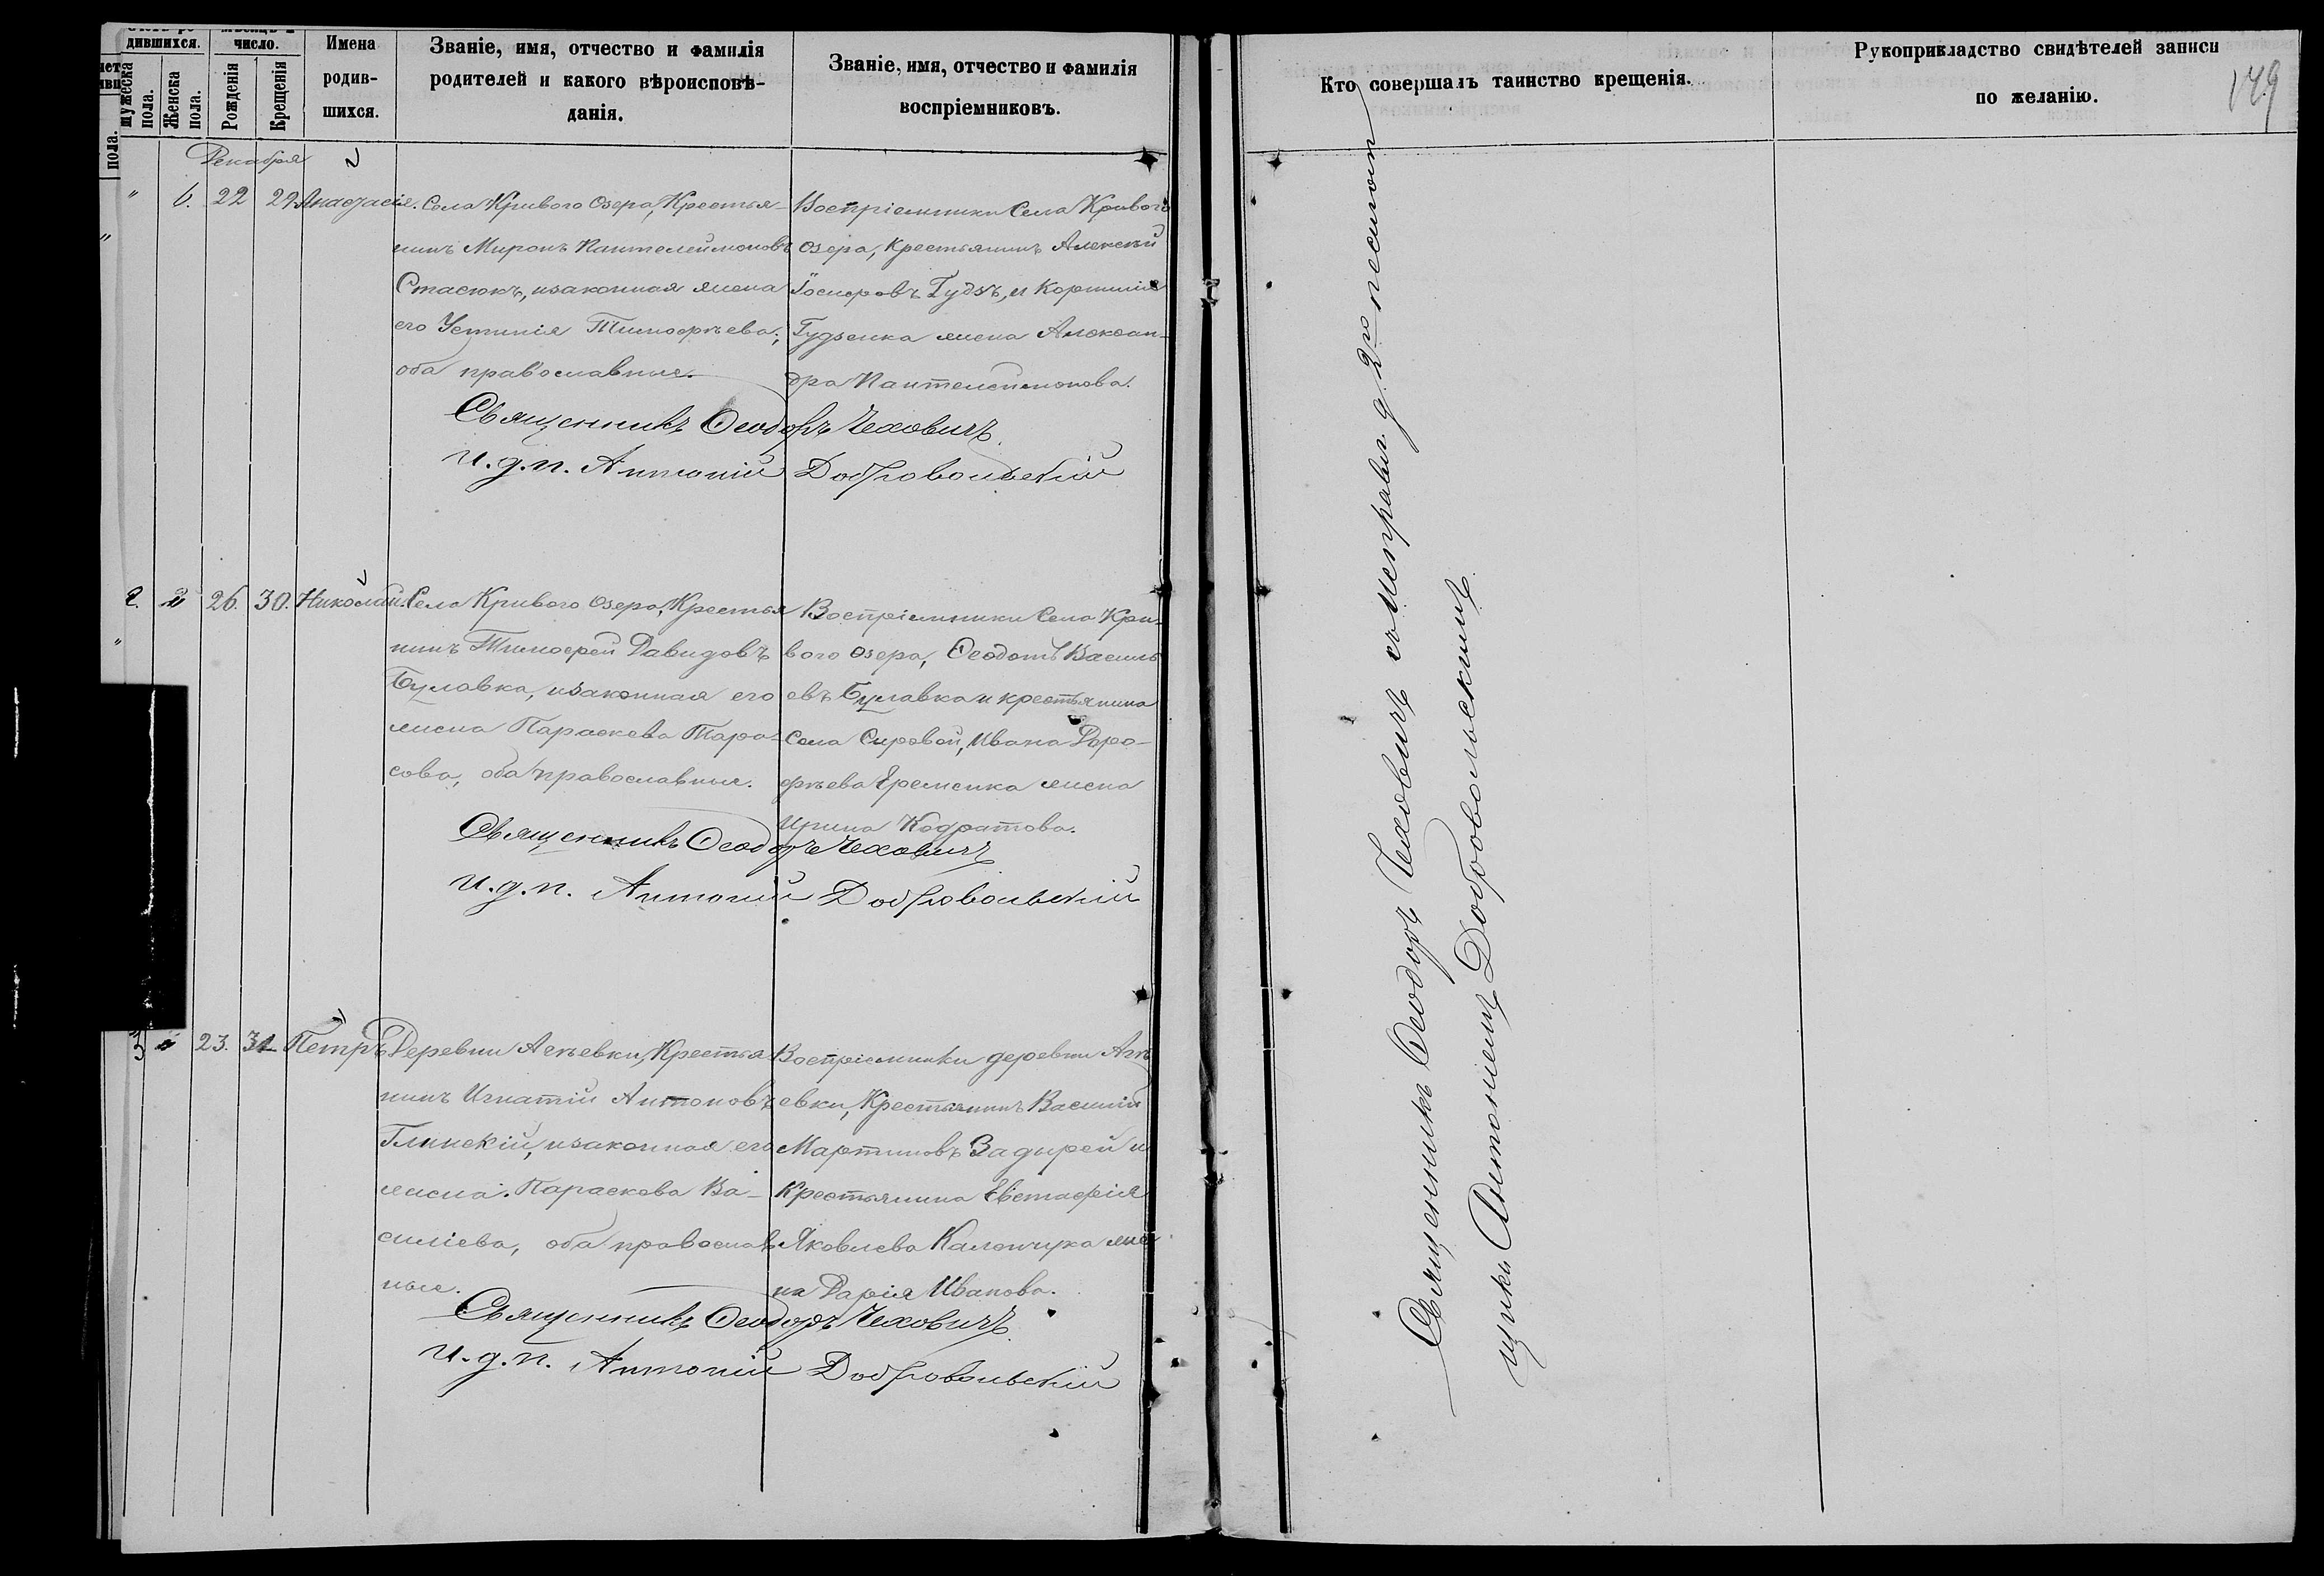 дившихся.
число.
Имена
родив-
шихся.
мужеска
пола.
Женска
пола.
Рожденія
Крещенія
Званіе, имя, отчество и фамилія
родителей и какого вѣроисповѣ-
данія.
Званіе, имя, отчество и фамилія
воспріемниковъ.
Кто совершалъ таинство крещенія.
Рукоприкладство свидѣтелей записи
по желанію.
149
пола.
Декабря
" 6. 22 29 Анастасія.
Села Криваго Озера, Крестья-
нинъ Миронъ Пантелеймоновъ
Стасюкъ, изаконная жена
его Устинія Тимофѣева;
оба православные.
Воспріемники Села Криваго
Озера, Крестьянинъ Алексѣй
Іосифовъ Гудзъ, и Корнилія
Гудзенка жена Алексан-
дра Пантелеймонова.
Священникъ Ѳеодоръ Чеховичъ
И. д. п. Антоній Добровольскій
2. 26. 30. Николай.
Села Криваго Озера, Крестья
нинъ Тимофей Давидовъ
Булавка, изаконная его
жена Параскева Тара-
сова, оба православные.
Воспріемники Села Кри-
вого Озера, Ѳеодотъ Василь
евъ Булавка и крестьянина
Села Сировой, Ивана Доро-
фѣева Еременка жена
Ирина Кодратова.
Священникъ Ѳеодоръ Чеховичъ
И. д. п. Антоній Добровольскій
3 23. 31 Петръ
Деревни Асѣевки, Крестья
нинъ Игнатій Антоновъ
Глинскій, изаконная его
жена Параскева Ва-
силіева, оба православ
ные.
Воспріемники деревни Асѣ
евки, Крестьянинъ Василій
Мартиновъ Задырей и
Крестьянина Евстафія
Яковлева Каленчука же
на Дарія Иванова.
Священникъ Ѳеодоръ Чеховичъ
И. д. п. Антоній Добровольскій
Священникъ Ѳеодоръ Чеховичъ съ исправл. д. 2го псаломъ
щика Антоніемъ Добровольскимъ.